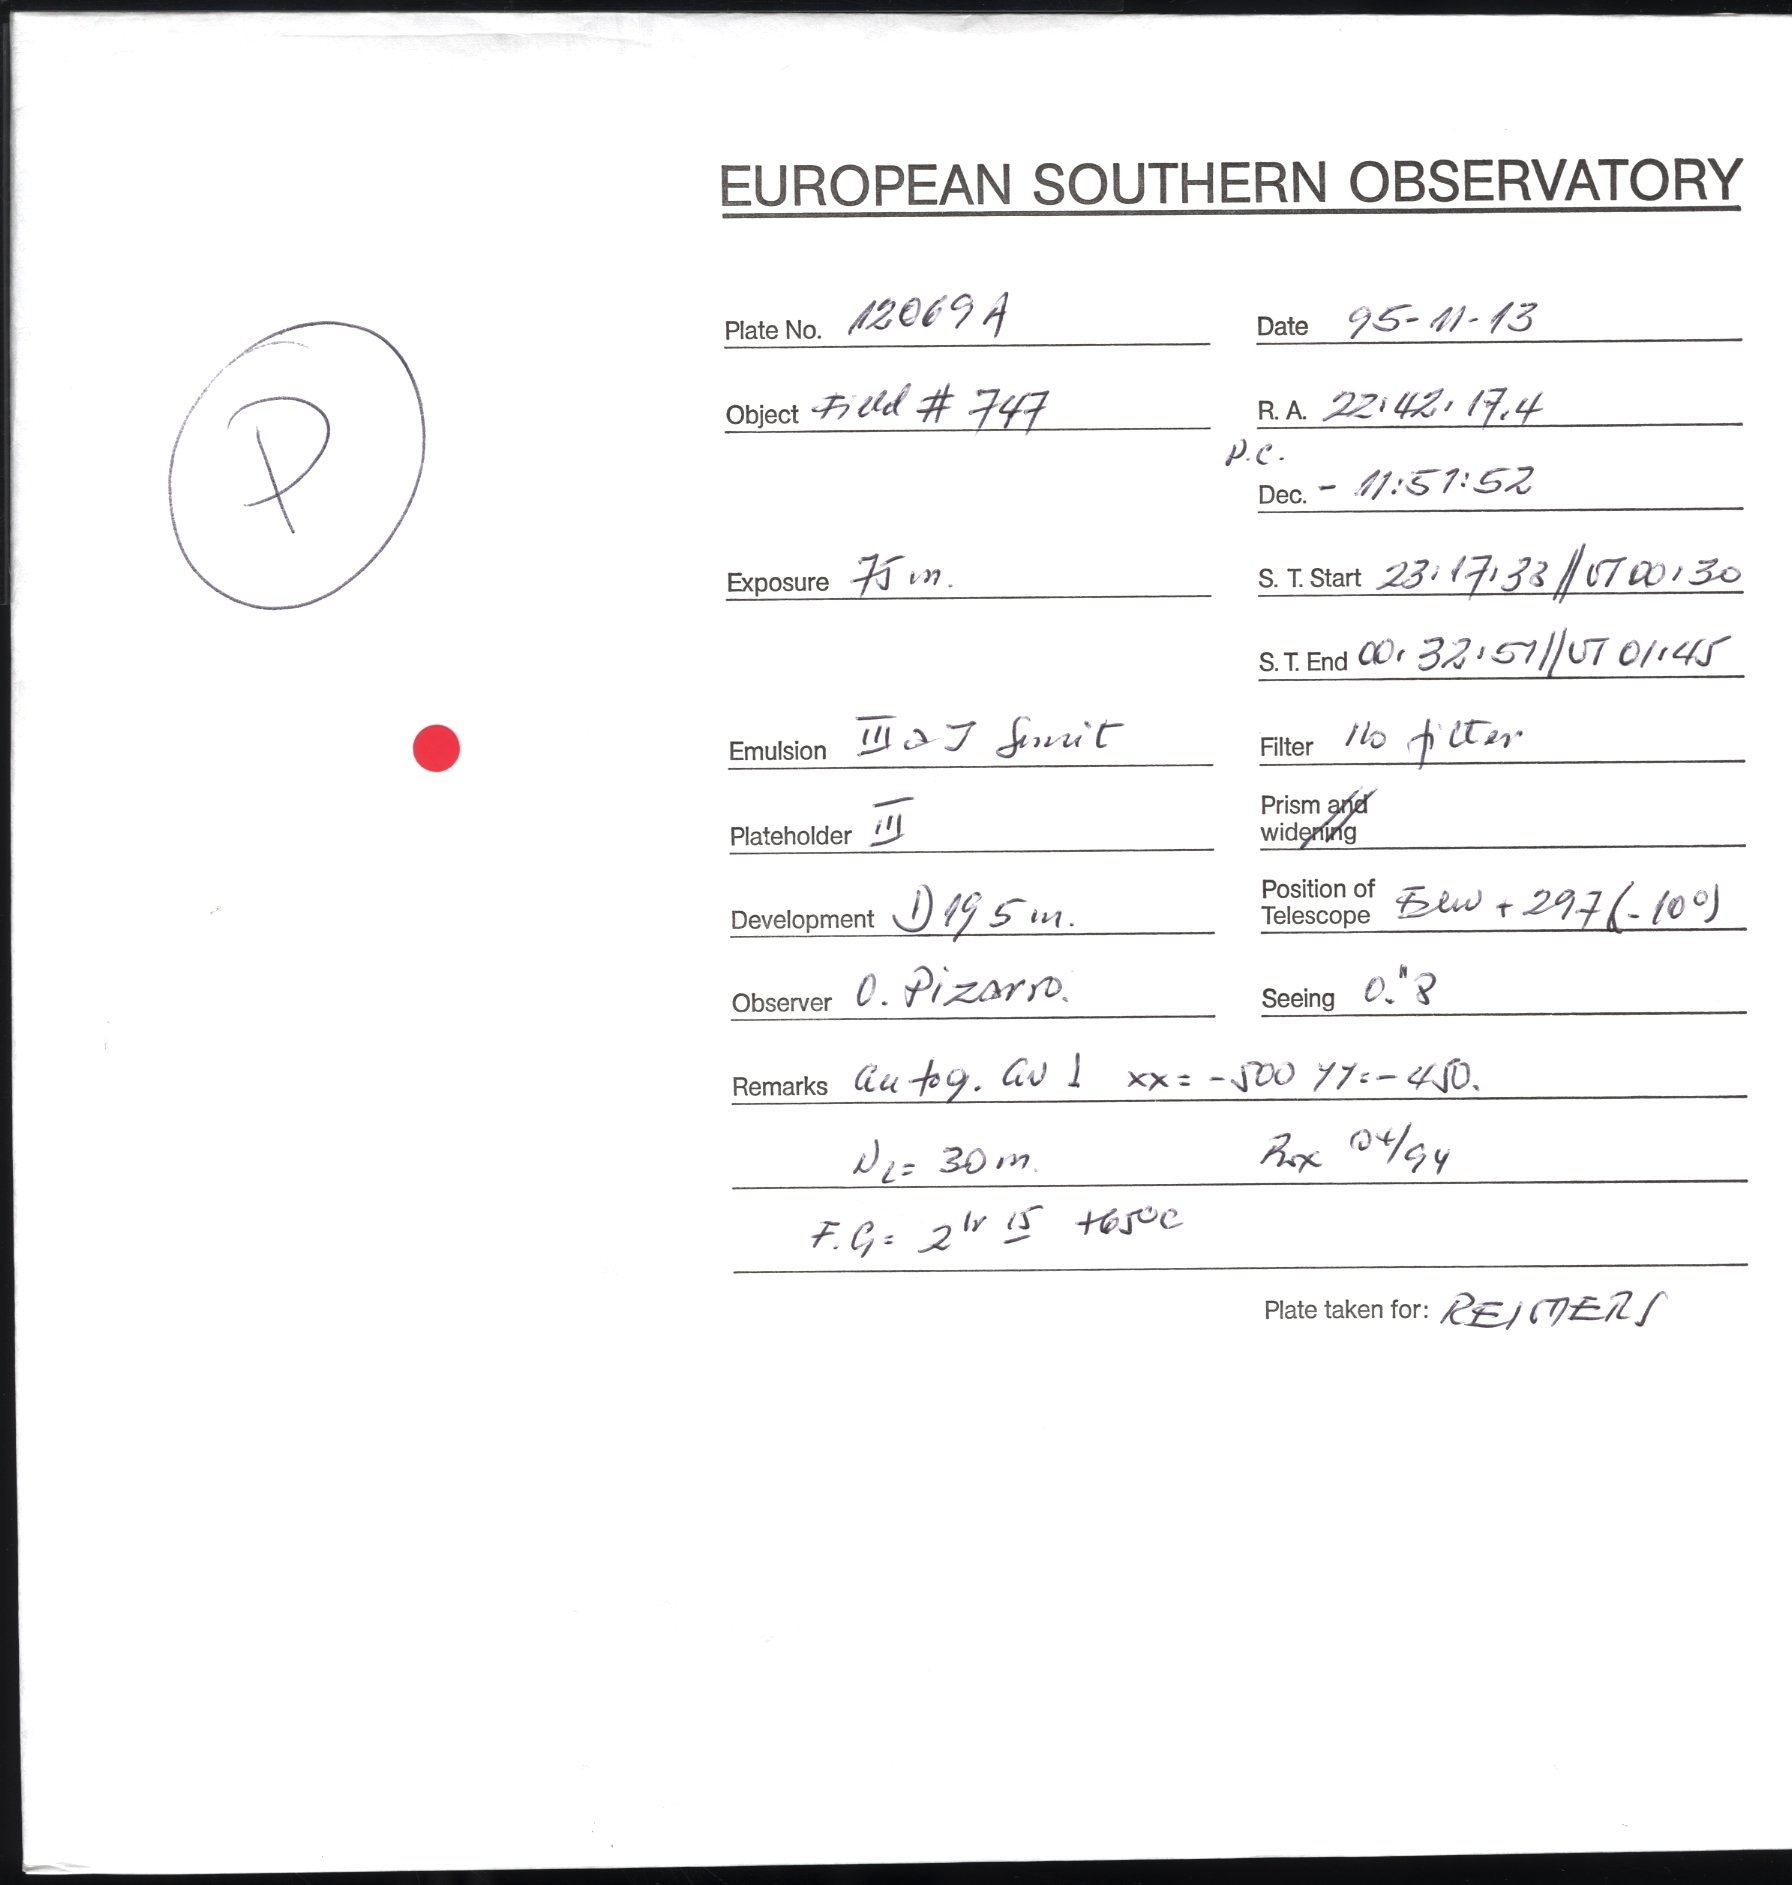 EUROPEAN SOUTHERN OBSERVATORY
Plate No. 12069 A Date 95-11-13
P
Object Field # 747 R. A. 22:42:17.4
P.C.
Dec. - 11:51:52
Exposure 75 m. S. T. Start 23:17:33 // UT 00:30
S. T. End 00:32:51 // UT 01:45
Emulsion III a J Filter no filter
Plateholder III Prism and widening
Development D19 5 m. Position of Telescope + 297 (-10°)
Observer O. Pizarro. Seeing 0."8
Remarks autog. xx = -500 yy = -450.
N2 = 30 m. 04/94
F.G = 2 hr 15 +65°C
Plate taken for: REIMERS